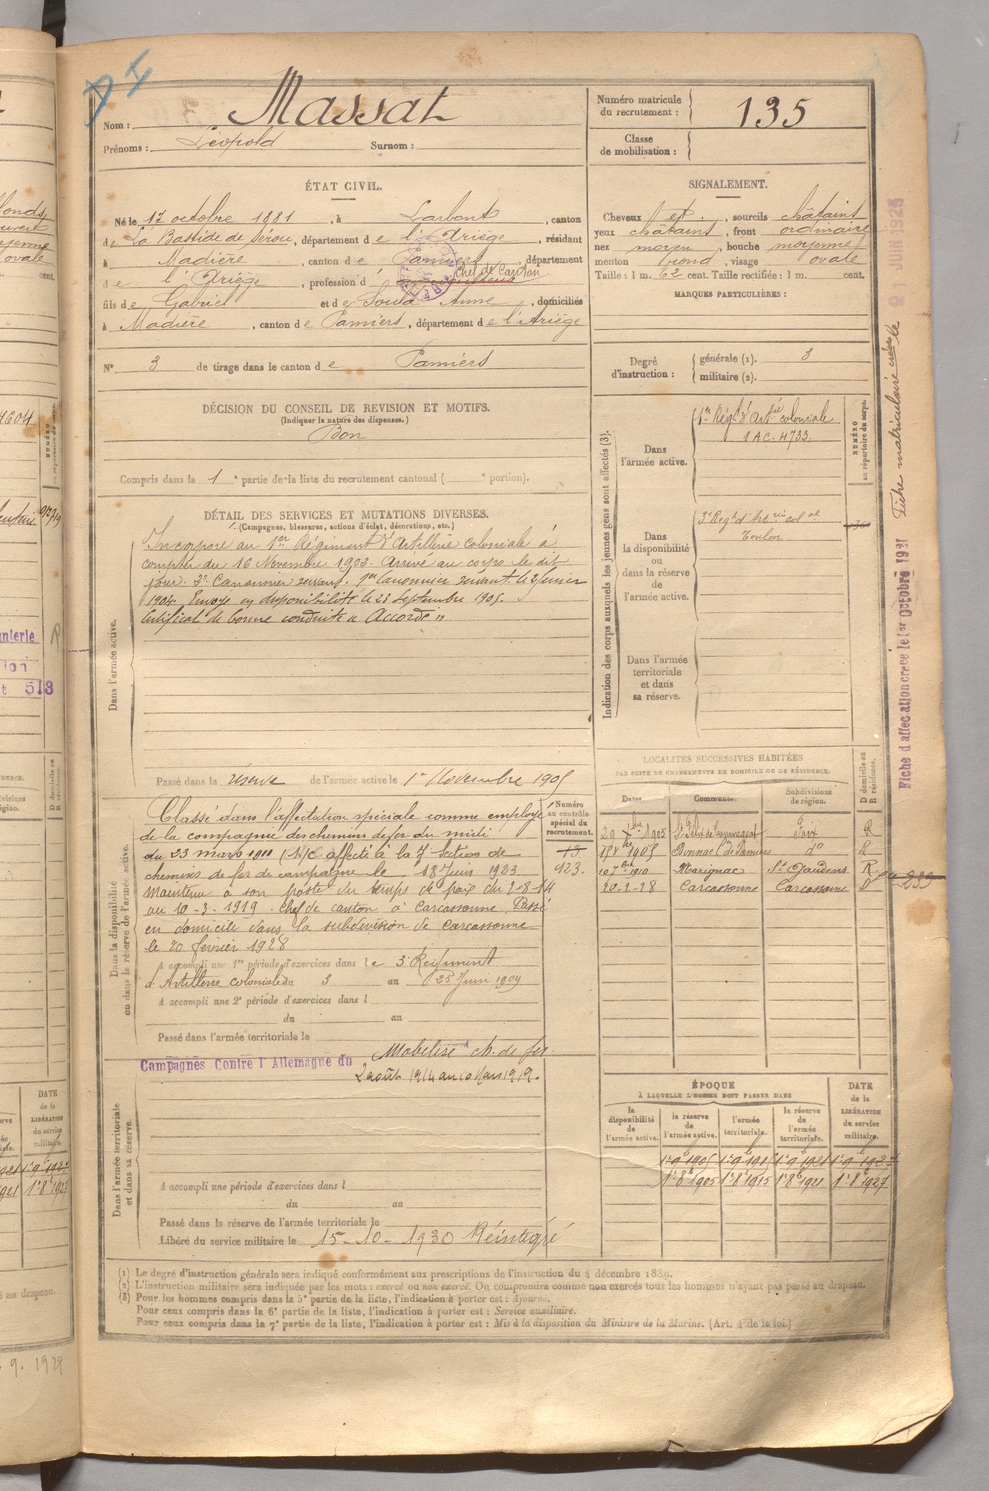 Nom : Massat
Prénoms : Léopold Surnom :
Numéro matricule du recrutement : 135
Classe de mobilisation :
ÉTAT CIVIL.
Né le 12 octobre 1881, à Larbont, canton
de La Bastide de Sérou, département de l'Ariège, résidant
à Madière, canton de Pamiers, département
de l'Ariège, profession d Chef de Canton
fils de Gabriel et de Soula Anne, domiciliés
à Madière, canton de Pamiers, département de l'Ariège
N° 3 de tirage dans le canton de Pamiers
SIGNALEMENT.
Cheveux et, sourcils châtains
yeux châtains, front ordinaire
nez moyen, bouche moyenne
menton rond, visage ovale
Taille : 1 m. 62 cent. Taille rectifiée : 1 m. cent.
MARQUES PARTICULIÈRES :
Degré d'instruction : générale (1). 3
militaire (2).
DÉCISION DU CONSEIL DE REVISION ET MOTIFS.
(Indiquer la nature des dispenses.)
Bon
Compris dans la 1e partie de la liste du recrutement cantonal ( e portion).
DÉTAIL DES SERVICES ET MUTATIONS DIVERSES.
(Campagnes, blessures, actions d'éclat, décorations, etc.)
Dans l'armée active.
Incorporé au 1er Régiment d'Artillerie coloniale à
compter du 16 Novembre 1902. Arrivé au corps le dit
jour. 2e Canonnier servant. 1er Canonnier servant le 2 février
1904. Envoyé en disponibilité le 23 Septembre 1905.
Certificat de bonne conduite « Accordé »
Passé dans la réserve de l'armée active le 1er Novembre 1905
Indication des corps auxquels les jeunes gens sont affectés (3).
Dans l'armée active.
1er Régt d'Artie coloniale
1 AC. 4733.
NUMÉRO au répertoire du corps.
Dans la disponibilité ou dans la réserve de l'armée active.
3e Régt d'Artie col
Toulon
Dans l'armée territoriale et dans sa réserve.
Dans la disponibilité ou dans la réserve de l'armée active.
Classé dans l'affectation spéciale comme employé
de la compagnie des chemins de fer du midi
du 23 mars 1911 affecté à la 7 Section de
chemins de fer de campagne le 18 Juin 1923
maintenu à son poste du temps de paix du 2-8-14
au 10-3-1919. Chef de canton à Carcassonne. Passé
en domicile dans la subdivision de Carcassonne
le 20 février 1928
Numéro au contrôle spécial du recrutement.
923.
A accompli une 1re période d'exercices dans le 3 Régiment
d'Artillerie coloniale du 3 au 25 Juin 1909
A accompli une 2e période d'exercices dans l
du au
Passé dans l'armée territoriale le
Campagnes Contre l'Allemagne du Mobilisé ch. de fer
2 août 1914 au 10 Mars 1919.
Dans l'armée territoriale et dans sa réserve.
A accompli une période d'exercices dans l
du au
Passé dans la réserve de l'armée territoriale le
Libéré du service militaire le 15-10-1930 Réintégré
LOCALITÉS SUCCESSIVES HABITÉES
PAR SUITE DE CHANGEMENTS DE DOMICILE OU DE RÉSIDENCE.
Dates. Communes. Subdivisions de région. D domicile ou R résidence.
1905 Foix R
1905 Bonnac de Pamiers do R
1910 Marignac St Gaudens R
20-2-28 Carcassonne Carcassonne D
ÉPOQUE
À LAQUELLE L'HOMME DOIT PASSER DANS
la disponibilité de l'armée active. la réserve de l'armée active. l'armée territoriale. la réserve de l'armée territoriale. DATE de la LIBÉRATION du service militaire.
1er 8 1905 1er 8 1915 1er 8 1921 1er 8 1927
(1) Le degré d'instruction générale sera indiqué conformément aux prescriptions de l'instruction du 4 décembre 1889.
(2) L'instruction militaire sera indiquée par les mots : exercé ou non exercé. On comprendra comme non exercés tous les hommes n'ayant pas passé au drapeau.
(3) Pour les hommes compris dans la 5e partie de la liste, l'indication à porter est : Ajourné.
Pour ceux compris dans la 6e partie de la liste, l'indication à porter est : Service auxiliaire.
Pour ceux compris dans la 7e partie de la liste, l'indication à porter est : Mis à la disposition du Ministre de la Marine. (Art. 4 de la loi.)
Fiche matriculaire créée le 21 JUIN 1926
Fiche d'affectation créée le 1er octobre 1931